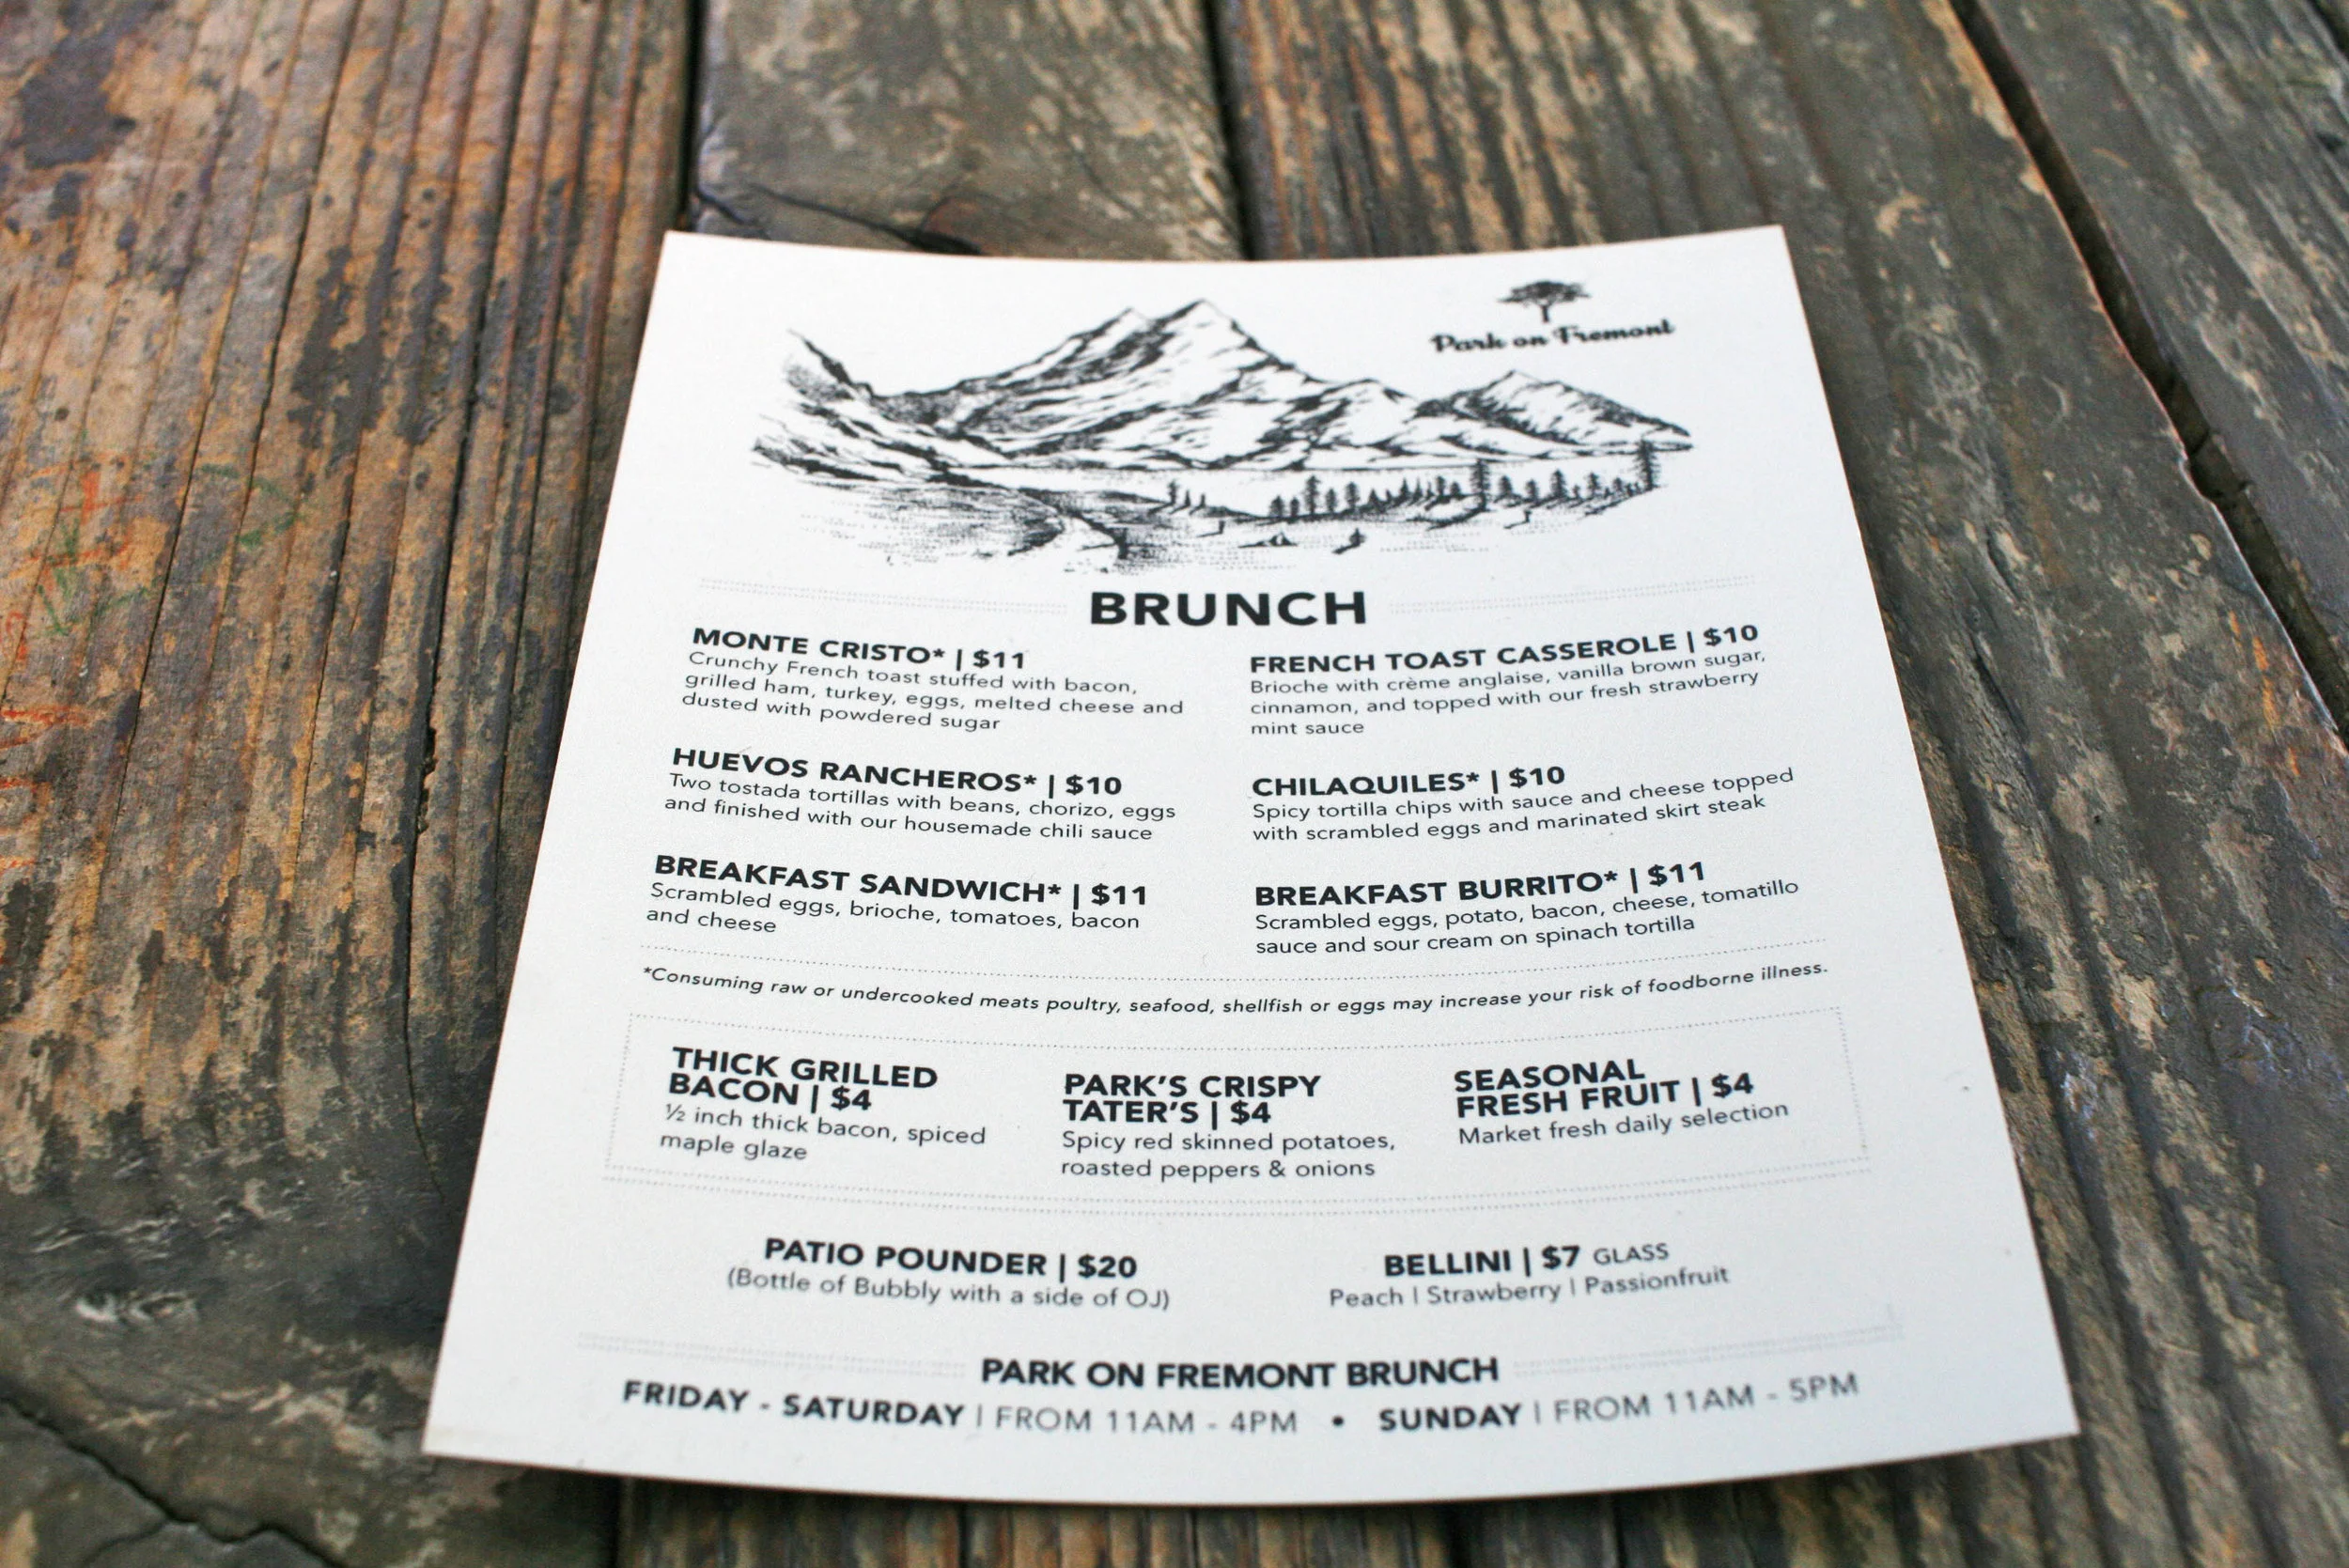 Park on Fremont
BRUNCH
MONTE CRISTO* | $11
Crunchy French toast stuffed with bacon,
grilled ham, turkey, eggs, melted cheese and
dusted with powdered sugar
FRENCH TOAST CASSEROLE | $10
Brioche with crème anglaise, vanilla brown sugar,
cinnamon, and topped with our fresh strawberry
mint sauce
HUEVOS RANCHEROS* | $10
Two tostada tortillas with beans, chorizo, eggs
and finished with our housemade chili sauce
CHILAQUILES* | $10
Spicy tortilla chips with sauce and cheese topped
with scrambled eggs and marinated skirt steak
BREAKFAST SANDWICH* | $11
Scrambled eggs, brioche, tomatoes, bacon
and cheese
BREAKFAST BURRITO* | $11
Scrambled eggs, potato, bacon, cheese, tomatillo
sauce and sour cream on spinach tortilla
*Consuming raw or undercooked meats poultry, seafood, shellfish or eggs may increase your risk of foodborne illness.
THICK GRILLED
BACON | $4
½ inch thick bacon, spiced
maple glaze
PARK'S CRISPY
TATER'S | $4
Spicy red skinned potatoes,
roasted peppers & onions
SEASONAL
FRESH FRUIT | $4
Market fresh daily selection
PATIO POUNDER | $20
(Bottle of Bubbly with a side of OJ)
BELLINI | $7 GLASS
Peach | Strawberry | Passionfruit
PARK ON FREMONT BRUNCH
FRIDAY - SATURDAY | FROM 11AM - 4PM • SUNDAY | FROM 11AM - 5PM